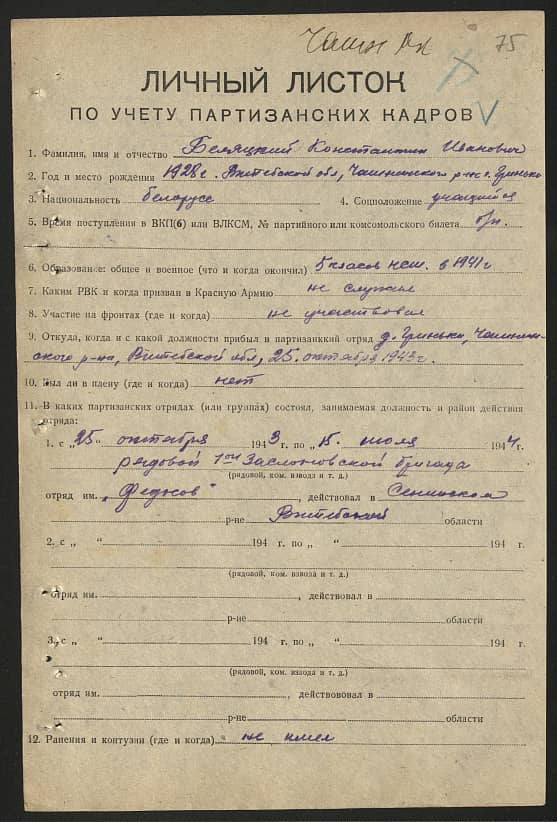 Чашн Рк 75
ЛИЧНЫЙ ЛИСТОК
ПО УЧЕТУ ПАРТИЗАНСКИХ КАДРОВ
1. Фамилия, имя и отчество Беляцкий Константин Иванович
2. Год и место рождения 1928 г. Витебской обл, Чашникского р-на д. Гринько
3. Национальность белорусс 4. Соцположение учащийся
5. Время поступления в ВКП(б) или ВЛКСМ, № партийного или комсомольского билета б/п.
6. Образование: общее и военное (что и когда окончил) 5 класов неш. в 1941 г
7. Каким РВК и когда призван в Красную Армию не служил
8. Участие на фронтах (где и когда) не участвовал
9. Откуда, когда и с какой должности прибыл в партизанкий отряд д. Гринько, Чашник-
ского р-на, Витебской обл, 25. октября 1943 г.
10. Был ли в плену (где и когда) нет
11. В каких партизанских отрядах (или группах) состоял, занимаемая должность и район действия
отряда:
1. с „25“ октября 1943 г. по „15. июля 1944 г.
рядовой 1ой Заслоновской бригада
(рядовой, ком. взвода и т. д.)
отряд им. „Федасов“, действовал в Сеннинском
р-не Витебской области
2. с „ “ 194 г. по „ “ 194 г.
(рядовой, ком. взвода и т. д.)
отряд им. , действовал в
р-не области
3. с „ “ 194 г. по „ “ 194 г.
(рядовой, ком. взвода и т. д.)
отряд им. , действововал в
р-не области
12. Ранения и контузии (где и когда) не имел